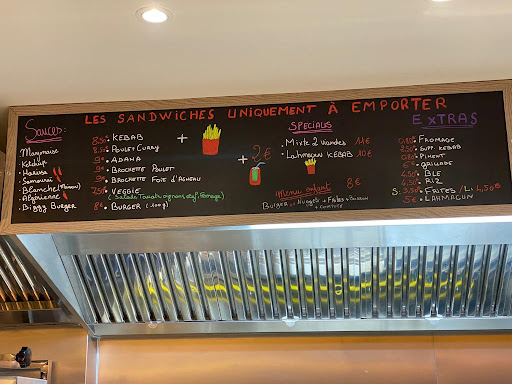 LES SANDWICHES UNIQUEMENT À EMPORTER
Sauces:
Mayonnaise
Ketchup
Harissa
Samouraï
Blanche (Maison)
Algérienne
Biggy Burger
KEBAB
Poulet Curry
9€ ADANA
9€ BROCHETTE POULET
9€ BROCHETTE FOIE D'AGNEAU
VEGGIE
(Salade, Tomate, oignons, œuf, fromage)
8€ BURGER (100g)
+
+ 2€
SPECIALES
Mixte 2 viandes 11€
Lahmaçun KEBAB 10€
menu enfant 8€
BURGER ou Nuggets + Frites + Boisson
+ COMPOTE
EXTRAS
FROMAGE
SUPP. KEBAB
PIMENT
GRILLADE
BLÉ
RIZ
S: FRITES / L: 4,50€
5€ LAHMACUN